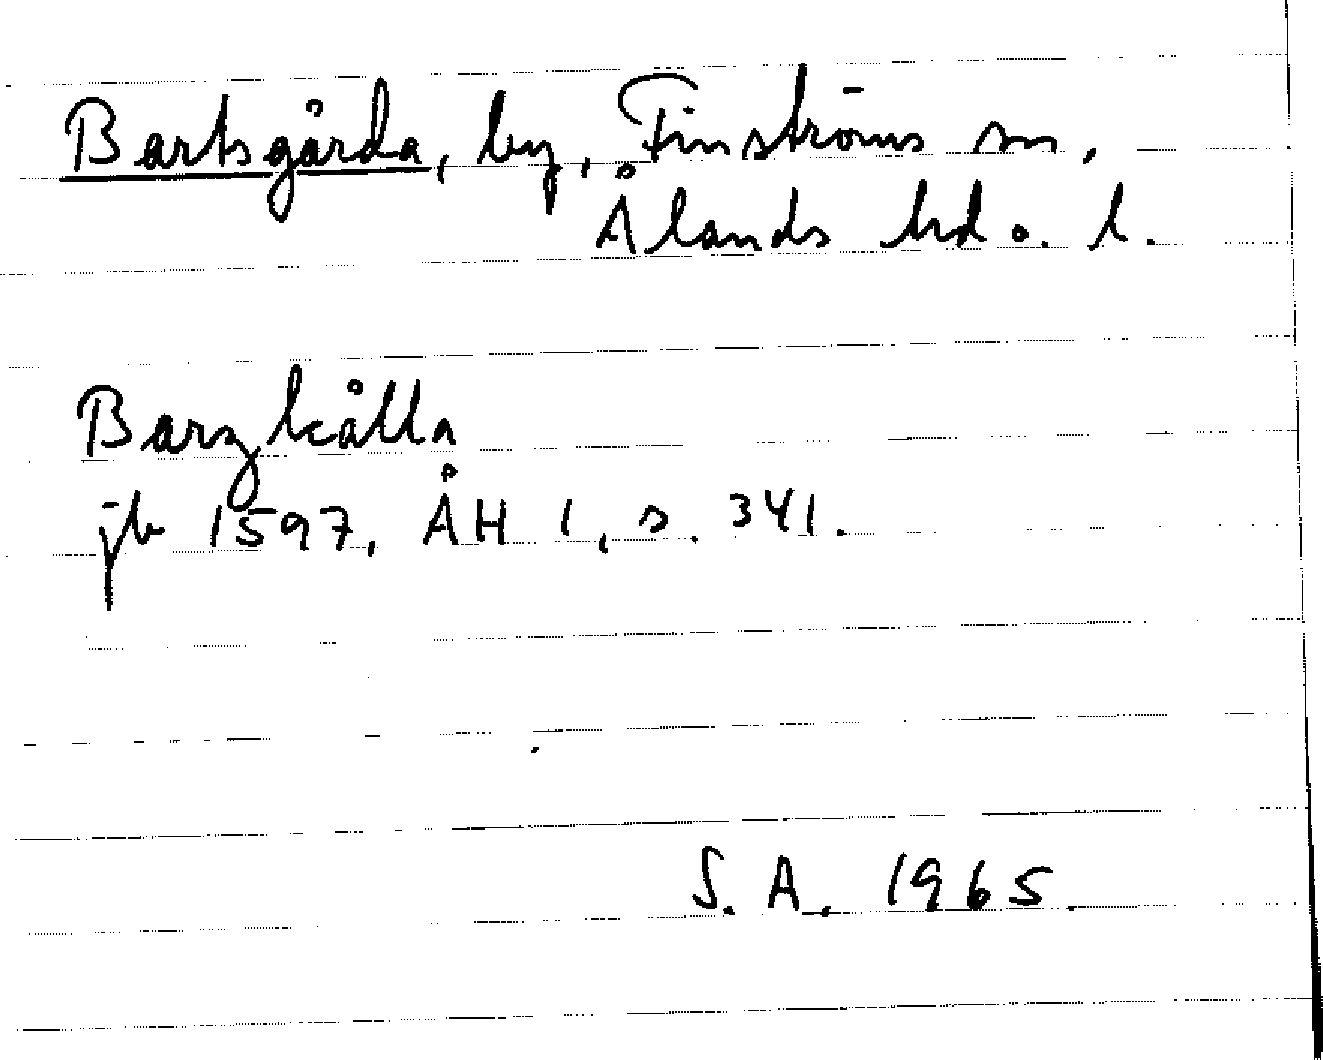 Bartsgårda, by, Finströms sn,
Ålands hd o. l.
Barzkålla
jb 1597, ÅH 1, s. 341.
S. A. 1965.